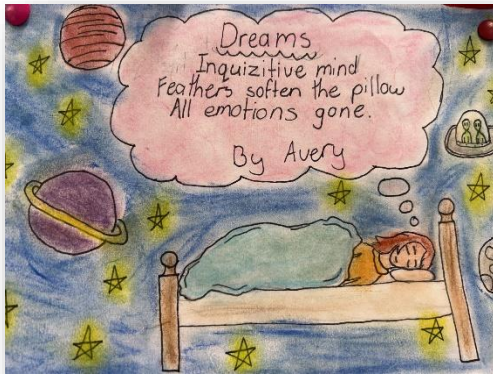 Dreams
Inquizitive mind
Feathers soften the pillow
All emotions gone.
By Avery